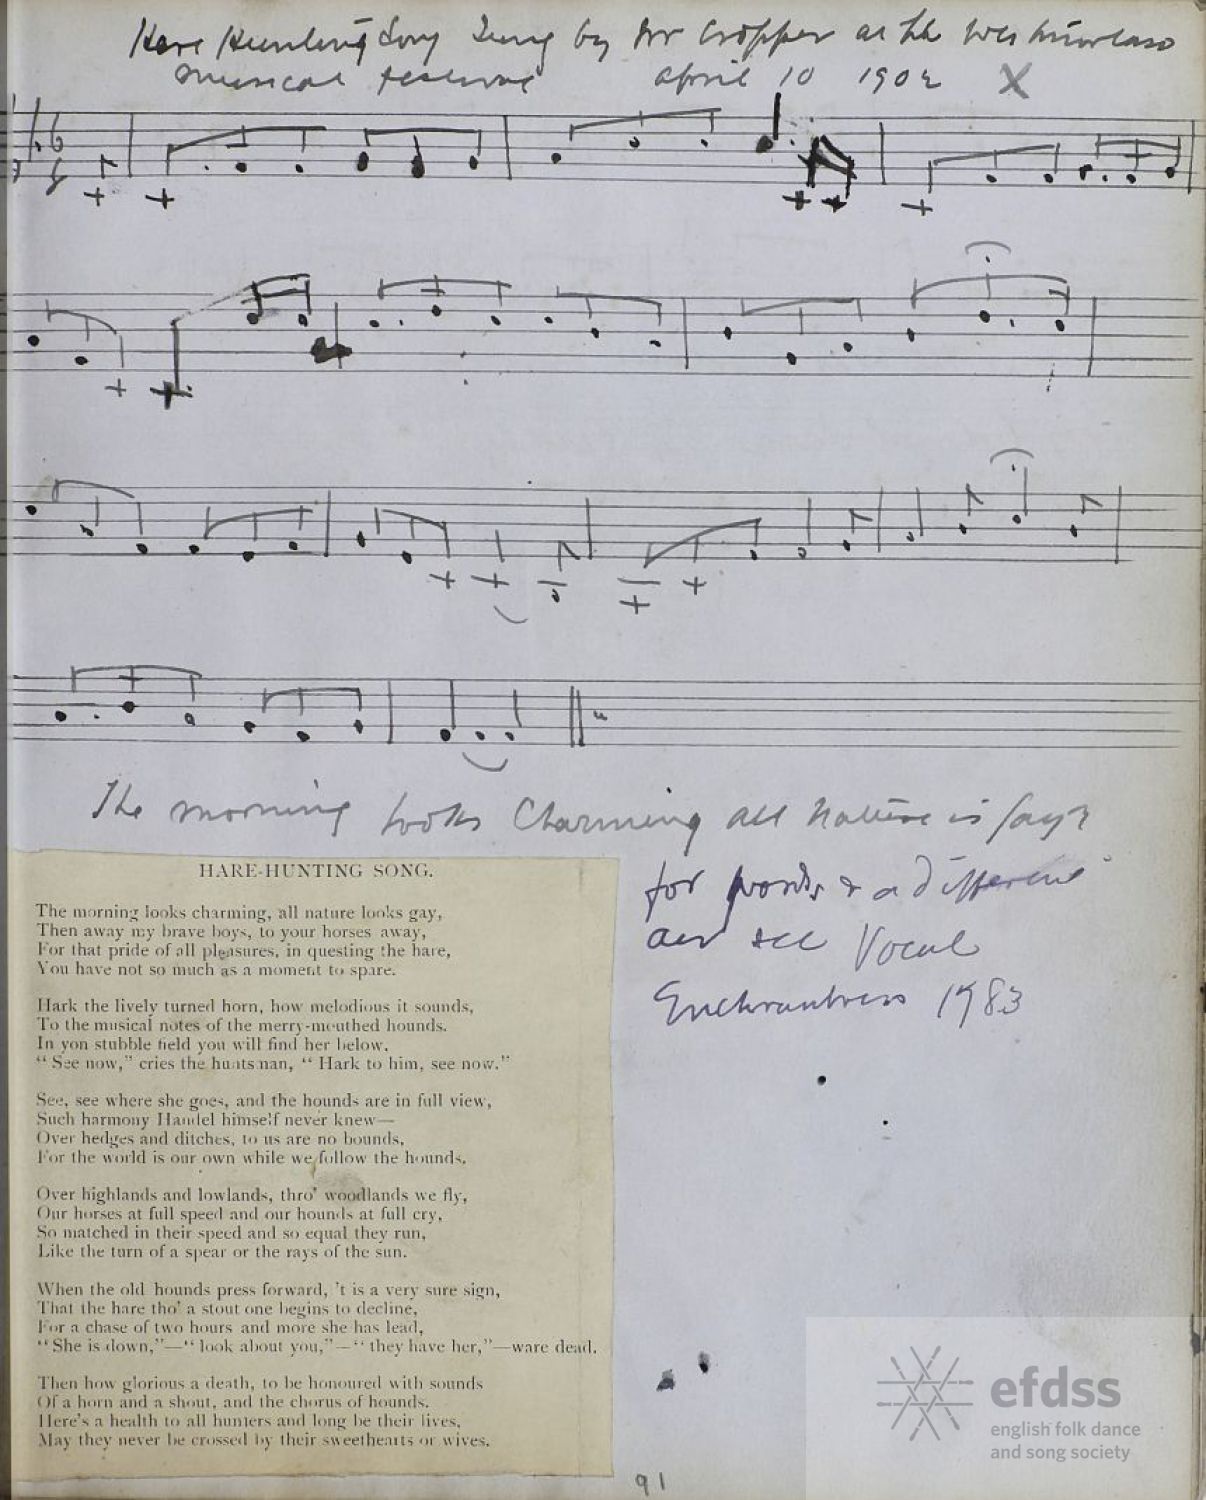 Hare Hunting Song Sung by Mr Cropper at the Westmorland
Musical festival april 10 1902 X
6
8
The morning looks Charming all nature is gay
HARE-HUNTING SONG.
The morning looks charming, all nature looks gay,
Then away my brave boys, to your horses away,
For that pride of all pleasures, in questing the hare,
You have not so much as a moment to spare.
Hark the lively turned horn, how melodious it sounds,
To the musical notes of the merry-mouthed hounds.
In yon stubble field you will find her below,
“ See now,” cries the huntsman, “ Hark to him, see now.”
See, see where she goes, and the hounds are in full view,
Such harmony Handel himself never knew—
Over hedges and ditches, to us are no bounds,
For the world is our own while we follow the hounds.
Over highlands and lowlands, thro’ woodlands we fly,
Our horses at full speed and our hounds at full cry,
So matched in their speed and so equal they run,
Like the turn of a spear or the rays of the sun.
When the old hounds press forward, ’t is a very sure sign,
That the hare tho’ a stout one begins to decline,
For a chase of two hours and more she has lead,
“ She is down,”—“ look about you,”—“ they have her,”—ware dead.
Then how glorious a death, to be honoured with sounds
Of a horn and a shout, and the chorus of hounds.
Here’s a health to all hunters and long be their lives,
May they never be crossed by their sweethearts or wives.
for words & a different
air see Vocal
Enchantress 1783
91
efdss
english folk dance
and song society